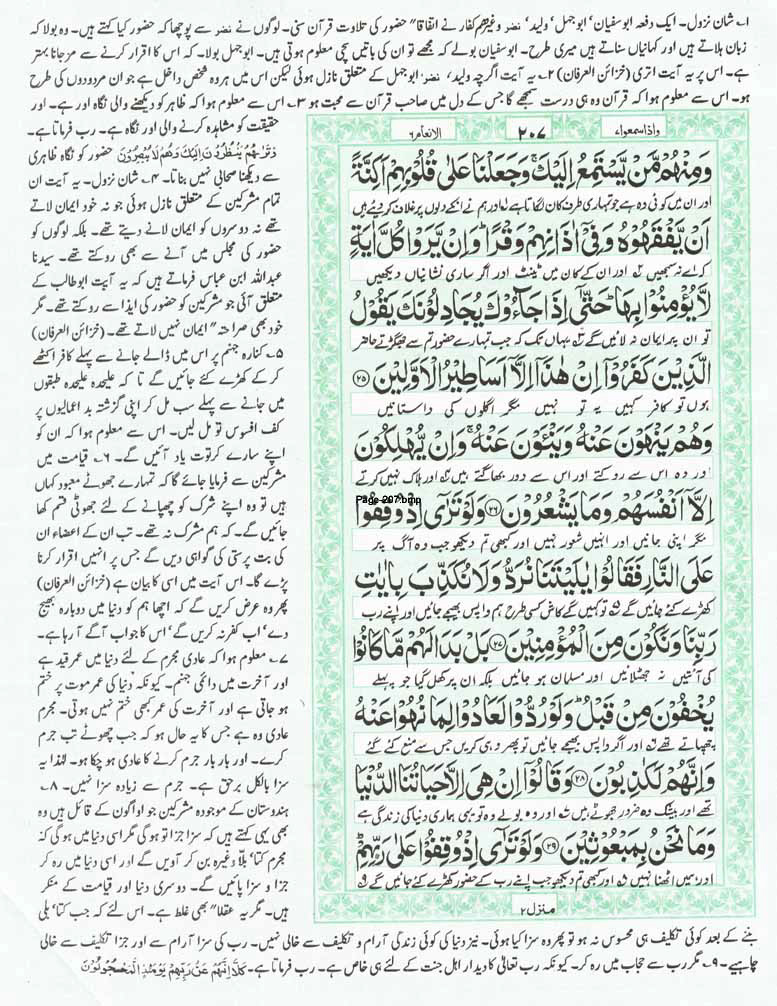 ۱؎ شان نزول۔ ایک دفعہ ابو سفیان' ابو جہل' ولید' نضر وغیرہم کفار نے اتفاقاً" حضور کی تلاوت قرآن سنی۔ لوگوں نے نضر سے پوچھا کہ حضور کیا کہتے ہیں۔ وہ بولا کہ
زبان ہلاتے ہیں اور کہانیاں سناتے ہیں میری طرح۔ ابو سفیان بولے کہ مجھے تو ان کی باتیں سچی معلوم ہوتی ہیں۔ ابو جہل بولا۔ کہ اس کا اقرار کرنے سے مرجانا بہتر
ہے۔ اس پر یہ آیت اتری (خزائن العرفان) ۲؎ یہ آیت اگرچہ ولید' نضر' ابو جہل کے متعلق نازل ہوئی لیکن اس میں ہر وہ شخص داخل ہے جو ان مردودوں کی طرح
ہو۔ اس سے معلوم ہوا کہ قرآن وہ ہی درست سمجھے گا جس کے دل میں صاحب قرآن سے محبت ہو ۳؎ اس سے معلوم ہوا کہ ظاہر کو دیکھنے والی نگاہ اور ہے۔ اور
حقیقت کو مشاہدہ کرنے والی اور نگاہ ہے۔ رب فرماتا ہے۔
وَتَرٰىهُمْ يَنْظُرُوْنَ اِلَيْكَ وَهُمْ لَا يُبْصِرُوْنَ حضور کو نگاہ ظاہری
سے دیکھنا صحابی نہیں بناتا۔ ۴؎ شان نزول۔ یہ آیت ان
تمام مشرکین کے متعلق نازل ہوئی جو نہ خود ایمان لاتے
تھے نہ دوسروں کو ایمان لانے دیتے تھے۔ بلکہ لوگوں کو
حضور کی مجلس میں آنے سے بھی روکتے تھے۔ سیدنا
عبداللہ ابن عباس فرماتے ہیں کہ یہ آیت ابو طالب کے
متعلق آئی جو مشرکین کو حضور کی ایذا سے روکتے تھے۔ مگر
خود بھی صراحتہ" ایمان نہیں لاتے تھے۔ (خزائن العرفان)
۵؎ کنارہ جہنم پر اس میں ڈالے جانے سے پہلے کافر اکٹھے
کر کے کھڑے کئے جائیں گے تا کہ علیحدہ علیحدہ طبقوں
میں جانے سے پہلے سب مل کر اپنی گزشتہ بد اعمالیوں پر
کف افسوس تو مل لیں۔ اس سے معلوم ہوا کہ ان کو
اپنے سارے کرتوت یاد آئیں گے۔ ۶؎ قیامت میں
مشرکین سے فرمایا جائے گا کہ تمہارے جھوٹے معبود کہاں
ہیں تو وہ اپنے شرک کو چھپانے کے لئے جھوٹی قسم کھا
جائیں گے۔ کہ ہم مشرک نہ تھے۔ تب ان کے اعضاء ان
کی بت پرستی کی گواہی دیں گے جس پر انہیں اقرار کرنا
پڑے گا۔ اس آیت میں اسی کا بیان ہے (خزائن العرفان)
پھر وہ عرض کریں گے کہ اچھا ہم کو دنیا میں دوبارہ بھیج
دے' اب کفر نہ کریں گے' اس کا جواب آگے آ رہا ہے۔
۷؎ معلوم ہوا کہ عادی مجرم کے لئے دنیا میں عمر قید ہے
اور آخرت میں دائمی جہنم۔ کیونکہ دنیا کی عمر موت پر ختم
ہو جاتی ہے اور آخرت کی عمر کبھی ختم نہیں ہوتی۔ مجرم
عادی وہ ہے جس کا یہ حال ہو کہ جب چھوٹے تب جرم
کرے۔ اور بار بار جرم کرنے کا عادی ہو چکا ہو۔ لہٰذا یہ
سزا بالکل برحق ہے۔ جرم سے زیادہ سزا نہیں۔ ۸؎
ہندوستان کے موجودہ مشرکین جو اواگون کے قائل ہیں وہ
بھی یہی کہتے ہیں کہ سزا جزا تو ہوگی مگر اسی دنیا میں ہو گی کہ
مجرم کتا' بلّا وغیرہ بن کر آویں گے اور اسی دنیا میں رہ کر
جزا و سزا پائیں گے۔ دوسری دنیا اور قیامت کے منکر
ہیں۔ مگر یہ عقلاً" بھی غلط ہے۔ اس لئے کہ جب کتا' بلی
واذاسمعوا۷ ۲۰۷ الانعام۶
وَمِنْهُمْ مَّنْ يَّسْتَمِعُ اِلَيْكَ ۚ وَجَعَلْنَا عَلٰى قُلُوْبِهِمْ اَكِنَّةً
اور ان میں کوئی وہ ہے جو تمہاری طرف کان لگاتا ہے اور ہم نے انکے دلوں پر غلاف کر دیئے ہیں
اَنْ يَّفْقَهُوْهُ وَفِيْٓ اٰذَانِهِمْ وَقْرًا ؕ وَاِنْ يَّرَوْا كُلَّ اٰيَةٍ
کہ اسے نہ سمجھیں اور ان کے کان میں ٹینٹ اور اگر ساری نشانیاں دیکھیں
لَّا يُؤْمِنُوْا بِهَا ؕ حَتّٰٓى اِذَا جَآءُوْكَ يُجَادِلُوْنَكَ يَقُوْلُ
تو ان پر ایمان نہ لائیں گے یہاں تک کہ جب تمہارے حضور تم سے جھگڑتے حاضر
الَّذِيْنَ كَفَرُوْٓا اِنْ هٰذَآ اِلَّآ اَسَاطِيْرُ الْاَوَّلِيْنَ ۝۲۵
ہوں تو کافر کہیں یہ تو نہیں مگر اگلوں کی داستانیں
وَهُمْ يَنْهَوْنَ عَنْهُ وَيَنْـَٔوْنَ عَنْهُ ۚ وَاِنْ يُّهْلِكُوْنَ
اور وہ اس سے روکتے اور اس سے دور بھاگتے ہیں اور ہلاک نہیں کرتے
اِلَّآ اَنْفُسَهُمْ وَمَا يَشْعُرُوْنَ ۝۲۶ وَلَوْ تَرٰٓى اِذْ وُقِفُوْا
Page-207.bmp
مگر اپنی جانیں اور انہیں شعور نہیں اور کبھی تم دیکھو جب وہ آگ پر
عَلَى النَّارِ فَقَالُوْا يٰلَيْتَنَا نُرَدُّ وَلَا نُكَذِّبَ بِاٰيٰتِ
کھڑے کئے جائیں گے تو کہیں گے کاش کسی طرح ہم واپس بھیجے جائیں اور اپنے رب
رَبِّنَا وَنَكُوْنَ مِنَ الْمُؤْمِنِيْنَ ۝۲۷ بَلْ بَدَا لَهُمْ مَّا كَانُوْا
کی آیتیں نہ جھٹلائیں اور مسلمان ہو جائیں بلکہ ان پر کھل گیا جو پہلے
يُخْفُوْنَ مِنْ قَبْلُ ؕ وَلَوْ رُدُّوْا لَعَادُوْا لِمَا نُهُوْا عَنْهُ
چھپاتے تھے اور اگر واپس بھیجے جائیں تو پھر وہی کریں جس سے منع کئے گئے
وَاِنَّهُمْ لَكٰذِبُوْنَ ۝۲۸ وَقَالُوْٓا اِنْ هِيَ اِلَّا حَيَاتُنَا الدُّنْيَا
تھے اور بیشک وہ ضرور جھوٹے ہیں اور وہ بولے وہ تو یہی ہماری دنیا کی زندگی ہے
وَمَا نَحْنُ بِمَبْعُوْثِيْنَ ۝۲۹ وَلَوْ تَرٰٓى اِذْ وُقِفُوْا عَلٰى رَبِّهِمْ ؕ
اور ہمیں اٹھنا نہیں اور کبھی تم دیکھو جب اپنے رب کے حضور کھڑے کئے جائیں گے
منزل۲
بننے کے بعد کوئی تکلیف ہی محسوس نہ ہو تو پھر وہ سزا کیا ہوئی۔ نیز دنیا کی کوئی زندگی آرام و تکلیف سے خالی نہیں۔ رب کی سزا آرام سے اور جزا تکلیف سے خالی
چاہیے۔ ۹؎ مگر رب سے حجاب میں رہ کر۔ کیونکہ رب تعالیٰ کا دیدار اہل جنت کے لئے ہی خاص ہے۔ رب فرماتا ہے۔ كَلَّآ اِنَّهُمْ عَنْ رَّبِّهِمْ يَوْمَئِذٍ لَّمَحْجُوْبُوْنَ